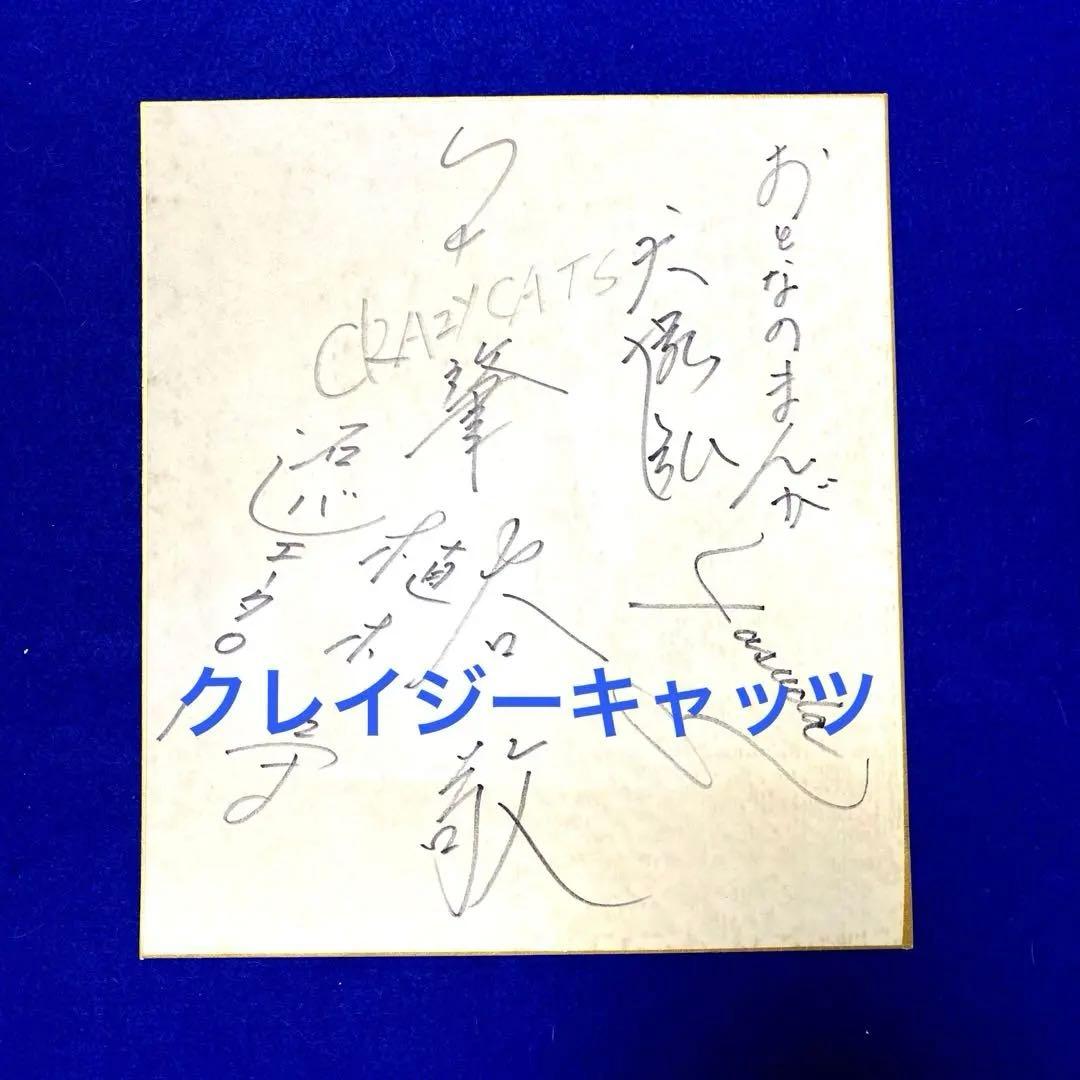 おとなのまんが
犬塚弘
Yasuda
ハナ肇
CRAZY CATS
谷啓
植木等
石橋エータロー
クレイジーキャッツ